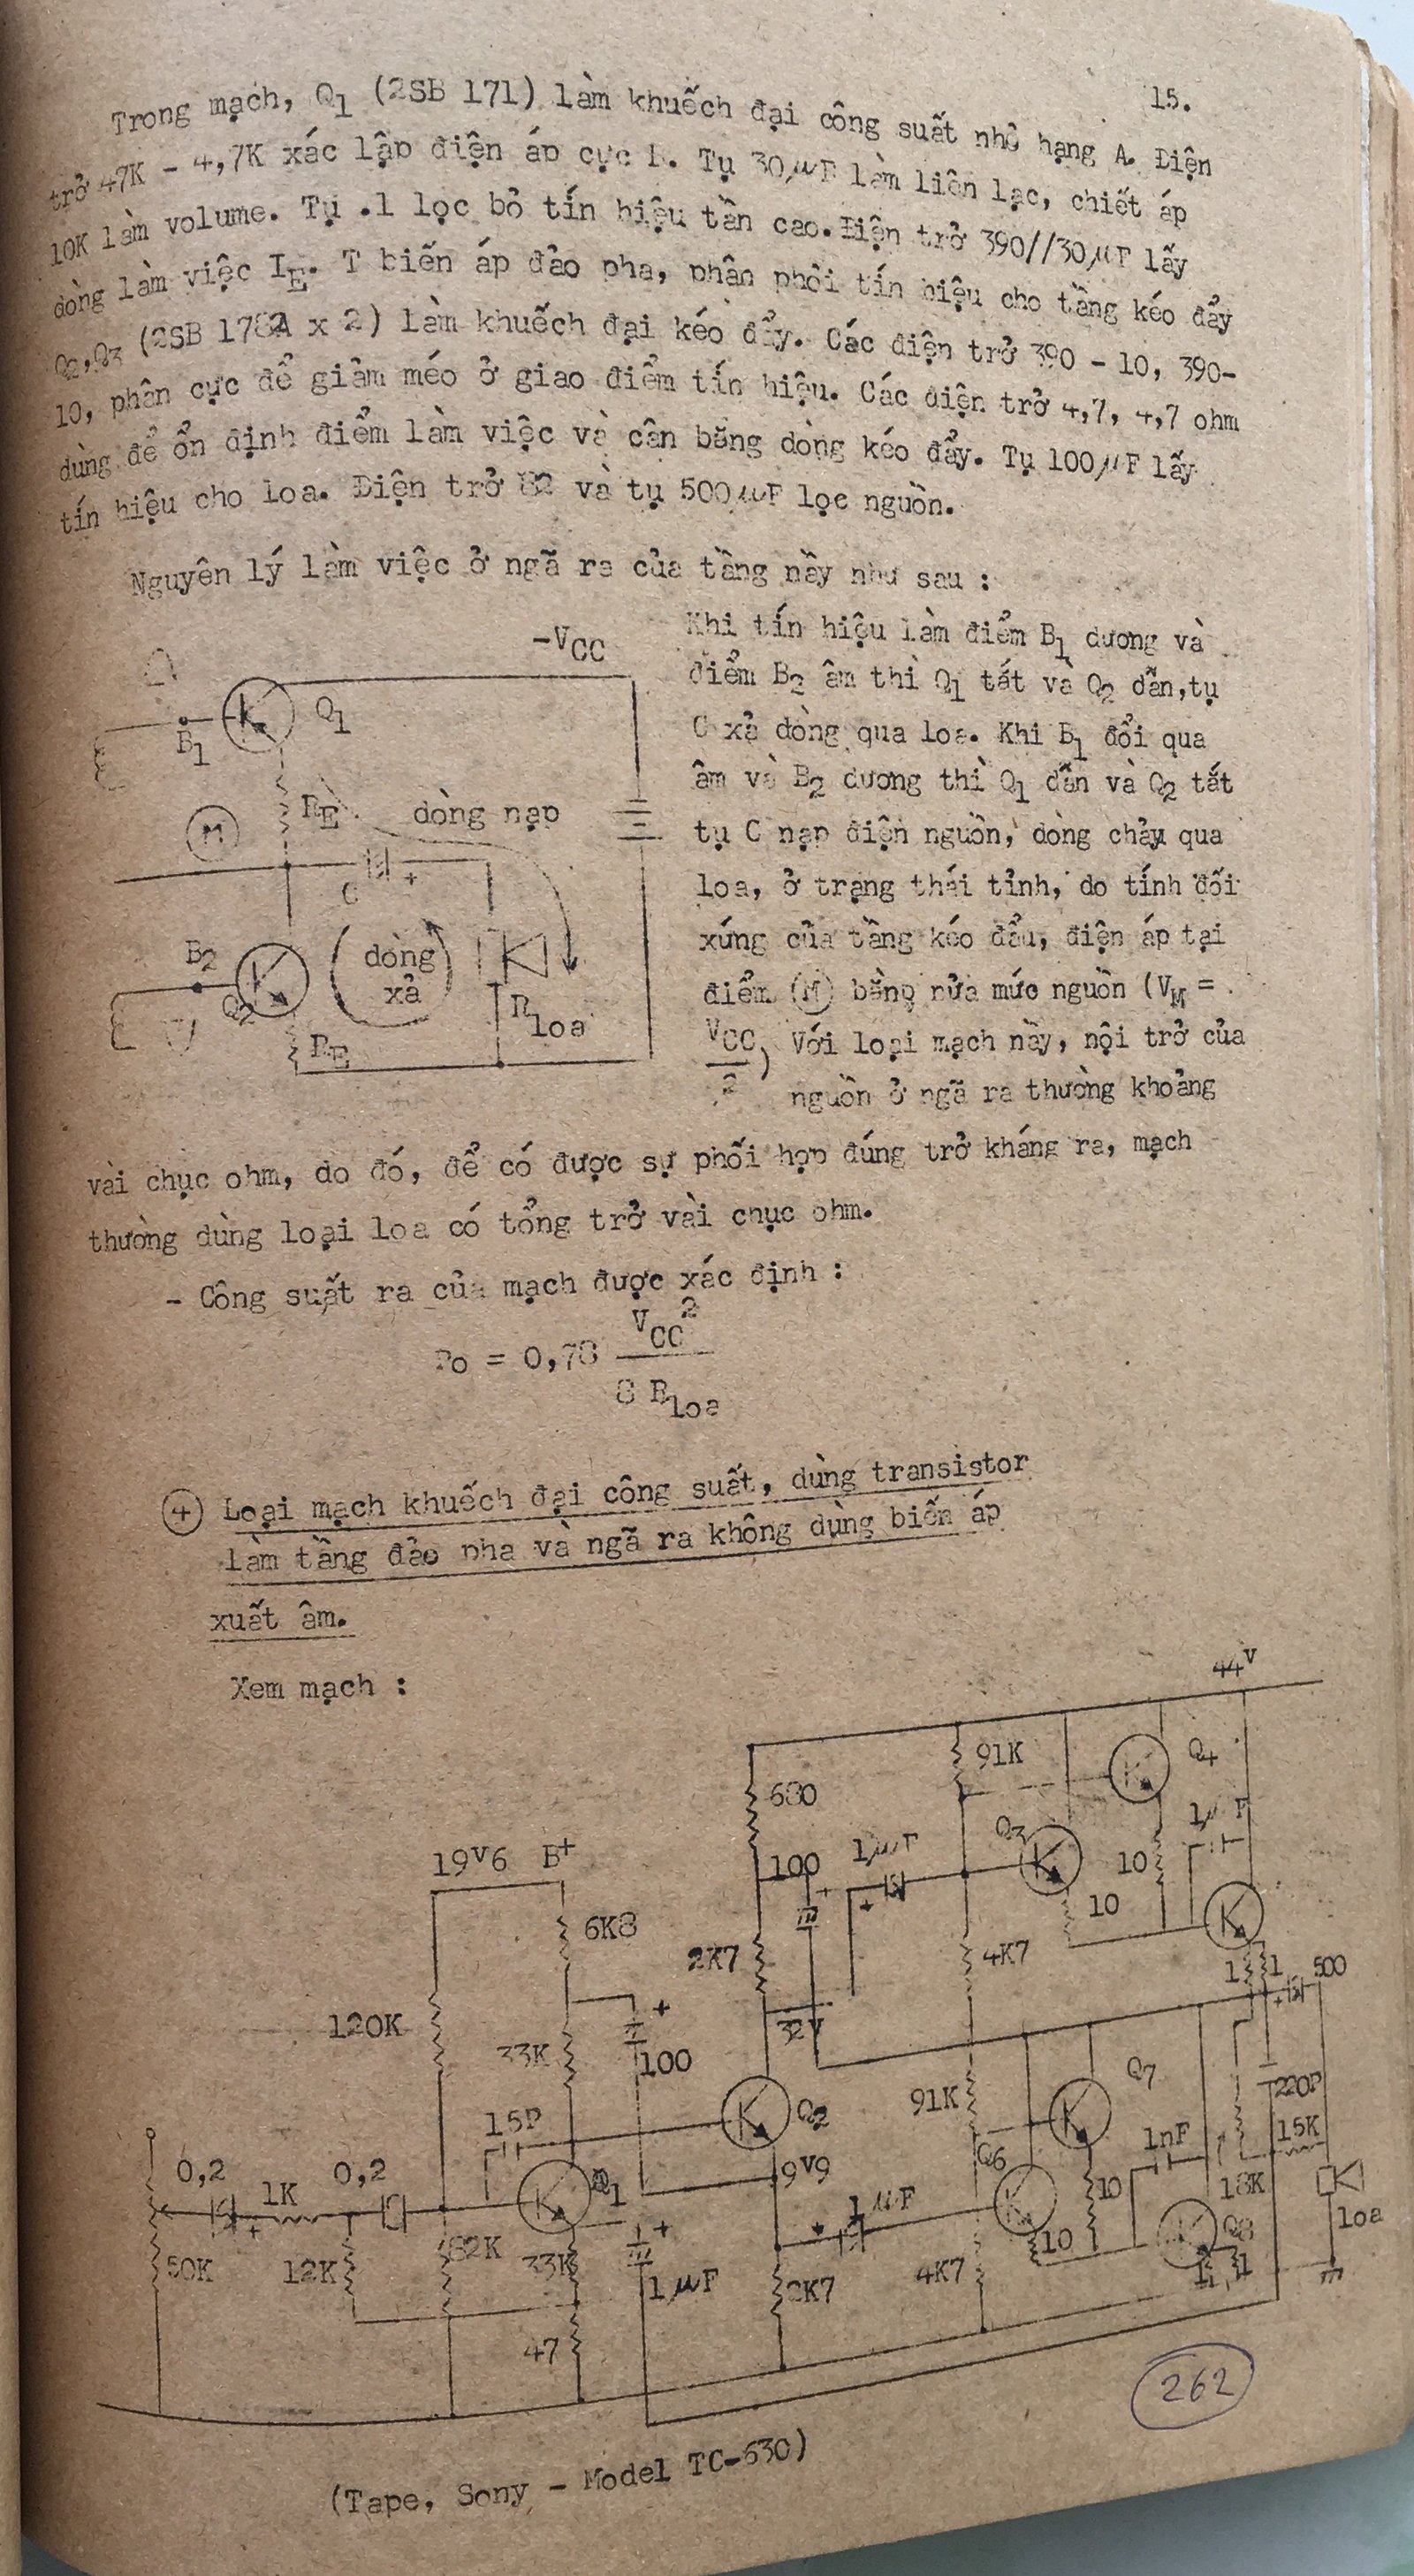 15.
Trong mạch, Q1 (2SB 171) làm khuếch đại công suất nhỏ hạng A. Điện
trở 47K - 4,7K xác lập điện áp cực B. Tụ 30µF làm liên lạc, chiết áp
10K làm volume. Tụ .1 lọc bỏ tín hiệu tần cao. Điện trở 390//30µF lấy
dòng làm việc IE. T biến áp đảo pha, phân phối tín hiệu cho tầng kéo đẩy
Q2,Q3 (2SB 178A x 2) làm khuếch đại kéo đẩy. Các điện trở 390 - 10, 390-
10, phân cực để giảm méo ở giao điểm tín hiệu. Các điện trở 4,7, 4,7 ohm
dùng để ổn định điểm làm việc và cân bằng dòng kéo đẩy. Tụ 100µF lấy
tín hiệu cho loa. Điện trở 82 và tụ 500µF lọc nguồn.
Nguyên lý làm việc ở ngã ra của tầng nầy như sau :
Khi tín hiệu làm điểm B1 dương và
điểm B2 âm thì Q1 tắt và Q2 dẫn, tụ
C xả dòng qua loa. Khi B1 đổi qua
âm và B2 dương thì Q1 dẫn và Q2 tắt
tụ C nạp điện nguồn, dòng chảy qua
loa, ở trạng thái tỉnh, do tính đối
xứng của tầng kéo đẩu, điện áp tại
điểm (M) bằng nửa mức nguồn (VM =
VCC/2) Với loại mạch này, nội trở của
nguồn ở ngã ra thường khoảng
-VCC
Q1
B1
RE
dòng nạp
M
C
+
B2
Q2
dòng
xả
R loa
RE
vài chục ohm, do đó, để có được sự phối hợp đúng trở kháng ra, mạch
thường dùng loại loa có tổng trở vài chục ohm.
- Công suất ra của mạch được xác định :
Po = 0,78 VCC2
8 Rloa
4 Loại mạch khuếch đại công suất, dùng transistor
làm tầng đảo pha và ngã ra không dùng biến áp
xuất âm.
Xem mạch :
44V
91K
Q4
680
1µF
Q3
1µF
100
10
+
+
10
19V6 B+
6K8
2K7
4K7
1
1
500
+
120K
32V
33K
+
100
91K
Q7
220P
15P
Q2
1nF
15K
Q6
0,2
0,2
1K
9V9
10
18K
Q1
1µF
+
+
+
10
Q8
loa
50K
12K
82K
33K
1µF
2K7
4K7
1
1
47
262
(Tape, Sony - Model TC-630)